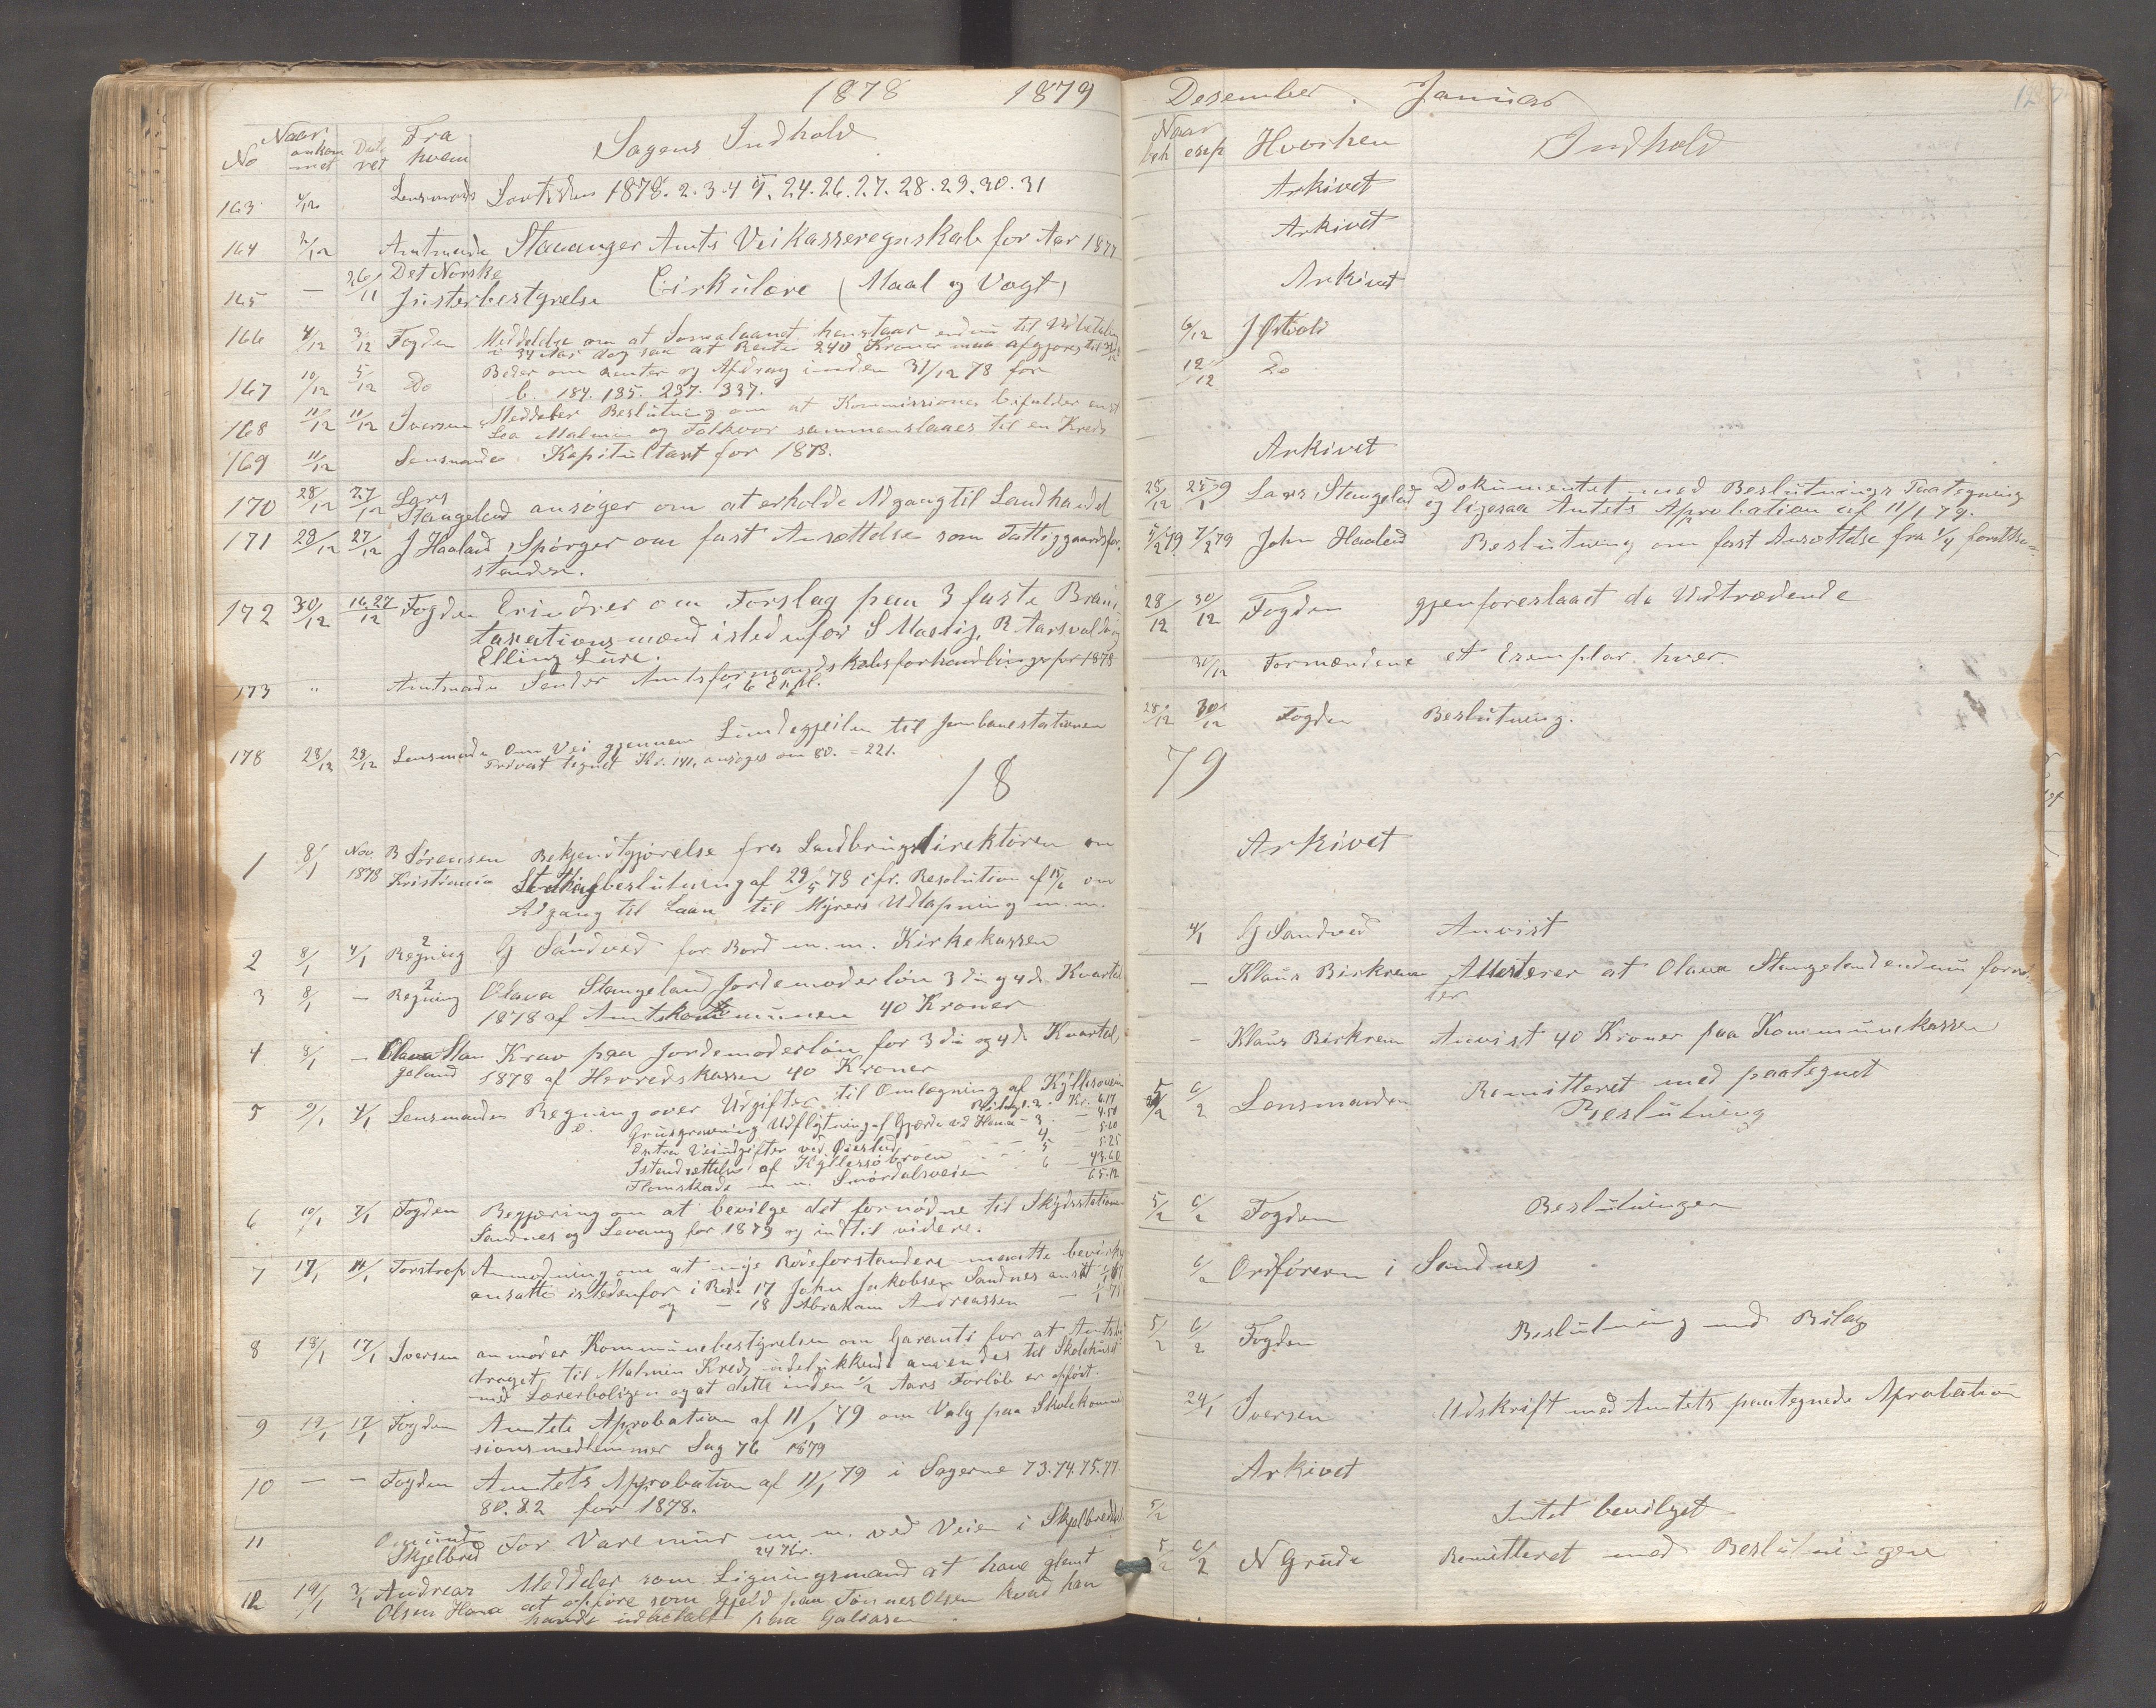 1878 1879
No Naar ankom met Dateret Fra hvem Sagens Indhold
163 4/12 Lensmand Lovtidn 1878. 2. 3. 4 5. 24. 26. 27. 28. 29. 30. 31
164 3/12 Amtmand Stavanger Amts Veikasseregnskab for Aar 1877
165 — 26/11 Det Norske
Justerbestyrelse Cirkulære (Maal og Vægt)
166 4/12 3/12 Fogden Meddelelse om at henstaar endnu til
i 34 Aar dog saa at Rente 240 Kroner maa afgjøres til 31/12
167 10/12 5/12 Do Beder om Renter og Afdrag inden 31/12 78 for
184. 185. 237. 337.
168 11/12 11/12 Iversen Meddeler Beslutning om at Kommissionen bifalder
Malmin og sammenslaaes til en Kreds
169 11/12 Lensmanden Kapitultaxt for 1878.
170 28/12 27/12 Lars
Stangeland ansøger om at erholde Adgang til Landhandel
171 28/12 27/12 J Haaland, Spørger om fast Ansættelse som Fattiggaardsfor-
stander.
172 30/12 16.27/12 Fogden Erindrer om Forslag paa 3 faste Brand
taxationsmænd istedenfor S Maslig, R Aarsvold og
Elling Lure.
173 " Amtmanden Sender Amtsformandskabsforhandlinger for 1878
i 6 Expl.
178 28/12 28/12 Lensmand Om Vei gjennem Lundegjeilen til Jernbanestationen
Privat tegnet Kr. 141, ansøges om 80. = 221.
18
1 8/1 Nov. 1878 B Sørensen Kristiania Bekjendtgjørelse fra Landbrugsdirektøren om
Stortingsbeslutning af 29/5 78 cfr. Resolution af 15/6 om
Adgang til Laan til Myrers Udtapning m.m.
2 8/1 4/1 Regning G Sandved for Bord m.m. Kirkekassen
3 8/1 — Regning Olava Stangeland Jordemoderløn 3die og 4de Kvartal
1878 af Amtskommunen 40 Kroner
4 8/1 — Olava Stan
geland Krav paa Jordemoderløn for 3die og 4de Kvartal
1878 af Herredskassen 40 Kroner
5 9/1 4/1 Lensmanden Regning over Udgifter til Omlægning af
Bilag 2. Kr. 6.17
Grusgravning Udflytning af Gjærde ved Hana - 3 — 4.50
Extra Veiudgifter ved Øiestad 4 — 5.60
Istandsættelse af Kyllesøbroen 5 5.25
Flomskade m.m. Svordalsveien 6 — 43.60
65.12
6 10/1 7/1 Fogden Begjæring om at bevilge det fornødne til Skydsstationer
Sandnes og Levang for 1879 og indtil videre.
7 17/1 14/1 Torstrop Anmodning om at nye Rodeforstandere maatte bevirkes
ansatte istedenfor i Rode 17 John Jakobsen Sandnes ansat
og — 18 Abraham Andreassen —
8 18/1 17/1 Iversen anmoder Kommunebestyrelsen om Garanti for at Amtsbi
draget til Malmin Kreds udelukkende anvendes til Skolehuset
med Lærerboligen og at dette inden 1/2 Aars Forløb er opført.
9 17/1 17/1 Fogden Amtets Aprobation af 11/1 79 om Valg paa Skolekommis
sionsmedlemmer Sag 76 1879
10 — — Fogden Amtets Approbation af 11/1 79 i Sagerne 73. 74. 75. 77.
80. 82 for 1878.
11 Omund
Skjelbred For Varemur m.m. ved Veien i Skjelbred
24 Kr.
12 19/1 2/1 Andreas
Olsen Hana Meddeler som Ligningsmand at have glemt
at opføre som Gjeld paa Tønnes Olsen hvad han
havde indbetalt paa Galeasen
Desember. Januar
Naar beh exp Hvorhen Indhold
Arkivet
Arkivet
Arkivet
6/12 J Østvold
12/12 Do
Arkivet
28/12 25/1 79 Lars Stangeland Dokumentet med Beslutnings Paategning
og ligesaa Amtets Aprobation af 11/1 79.
5/2 79 7/2 79 John Haaland Beslutning om fast Ansættelse fra 1/4
28/12 30/12 Fogden gjenforeslaaet de Udtrædende
30/12 Formændene et Exemplar hver.
28/12 30/12 Fogden Beslutning.
79
Arkivet
4/1 G Sandved Anvist
— Klaus Birkrem Attesterer at Olava Stangeland endnu
— Klaus Birkrem Anvist 40 Kroner paa Kommunekassen
5/2 6/2 Lensmanden Remitteret med paategnet
Beslutning
5/2 6/2 Fogden Beslutningen
6/2 Ordføreren i Sandnes
5/2 6/2 Fogden Beslutning med Bilag
24/1 Iversen Udskrift med Amtets paategnede Aprobation
Arkivet
5/2 Intet bevilget
5/2 6/2 N Grude Remitteret med Beslutningen